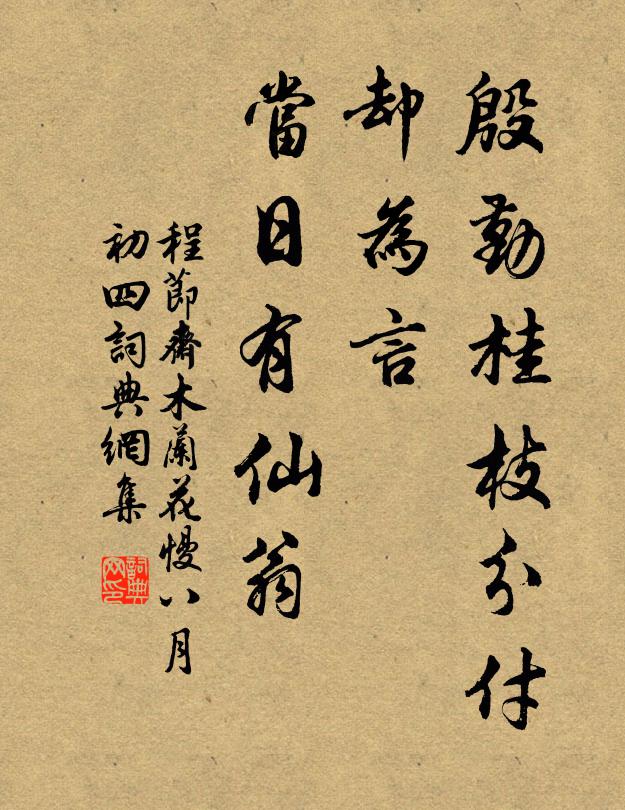 殷勤桂枝分付
却為言
當日有仙翁
程節齋木蘭花慢八月
初四詞典網集
詞典
网印